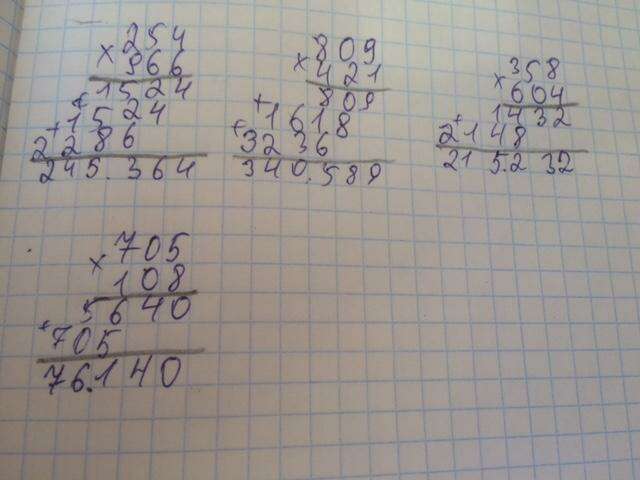 × 254
966
1524
+ 1524
+ 2286
245.364
× 809
421
809
+ 1618
+ 3236
340.589
× 358
604
1432
+ 2148
215.232
× 705
108
5640
+ 705
76.140